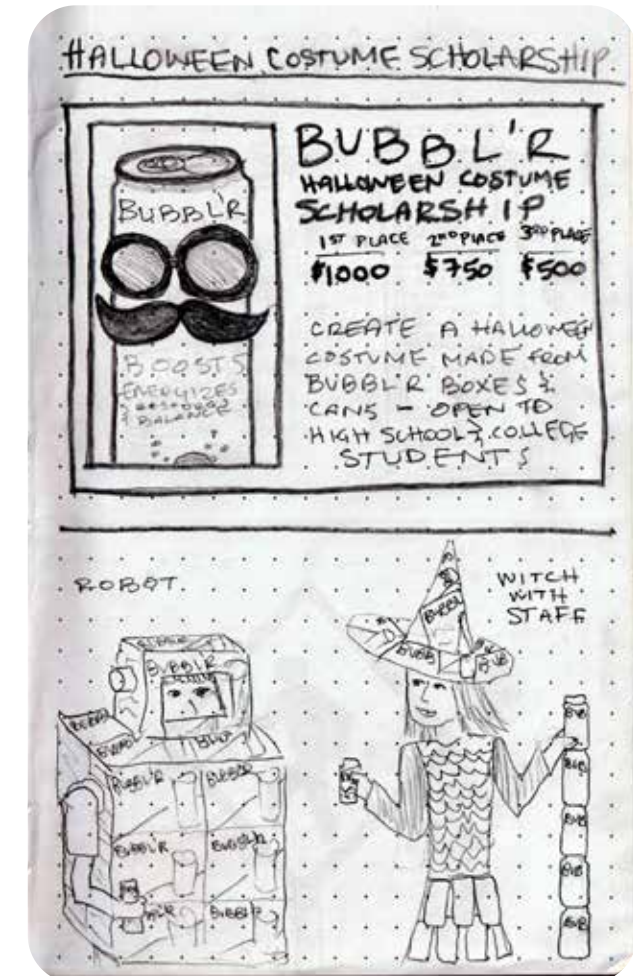 HALLOWEEN COSTUME SCHOLARSHIP
BUBBL'R
BOOSTS
ENERGIZES
& BALANCE
BUBBL'R
HALLOWEEN COSTUME
SCHOLARSHIP
1ST PLACE 2ND PLACE 3RD PLACE
$1000 $750 $500
CREATE A HALLOWEEN
COSTUME MADE FROM
BUBBL'R BOXES &
CANS – OPEN TO
HIGH SCHOOL & COLLEGE
STUDENTS
ROBOT
BUBBL'R
BUBBL'R
BUBBL'R BUBBL'R
BUBBL'R BUBBL'R
BUBBL'R
WITCH
WITH
STAFF
BUBBL
BUBB
BUB
BUB
BUB
BUB
BUB
BUB